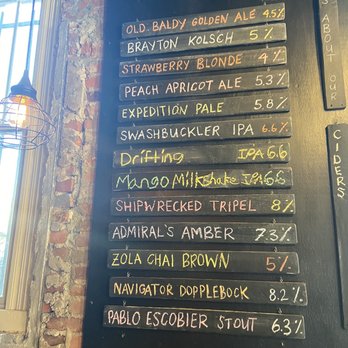 OLD BALDY GOLDEN ALE 4.5%
BRAYTON KOLSCH 5%
STRAWBERRY BLONDE 4%
PEACH APRICOT ALE 5.3%
EXPEDITION PALE 5.8%
SWASHBUCKLER IPA 6.6%
Drifting IPA 6.6
Mango Milkshake IPA 6.6
SHIPWRECKED TRIPEL 8%
ADMIRAL'S AMBER 7.3%
ZOLA CHAI BROWN 5%
NAVIGATOR DOPPLEBOCK 8.2%
PABLO ESCOBIER STOUT 6.3%
S ABOUT OUR
CIDERS